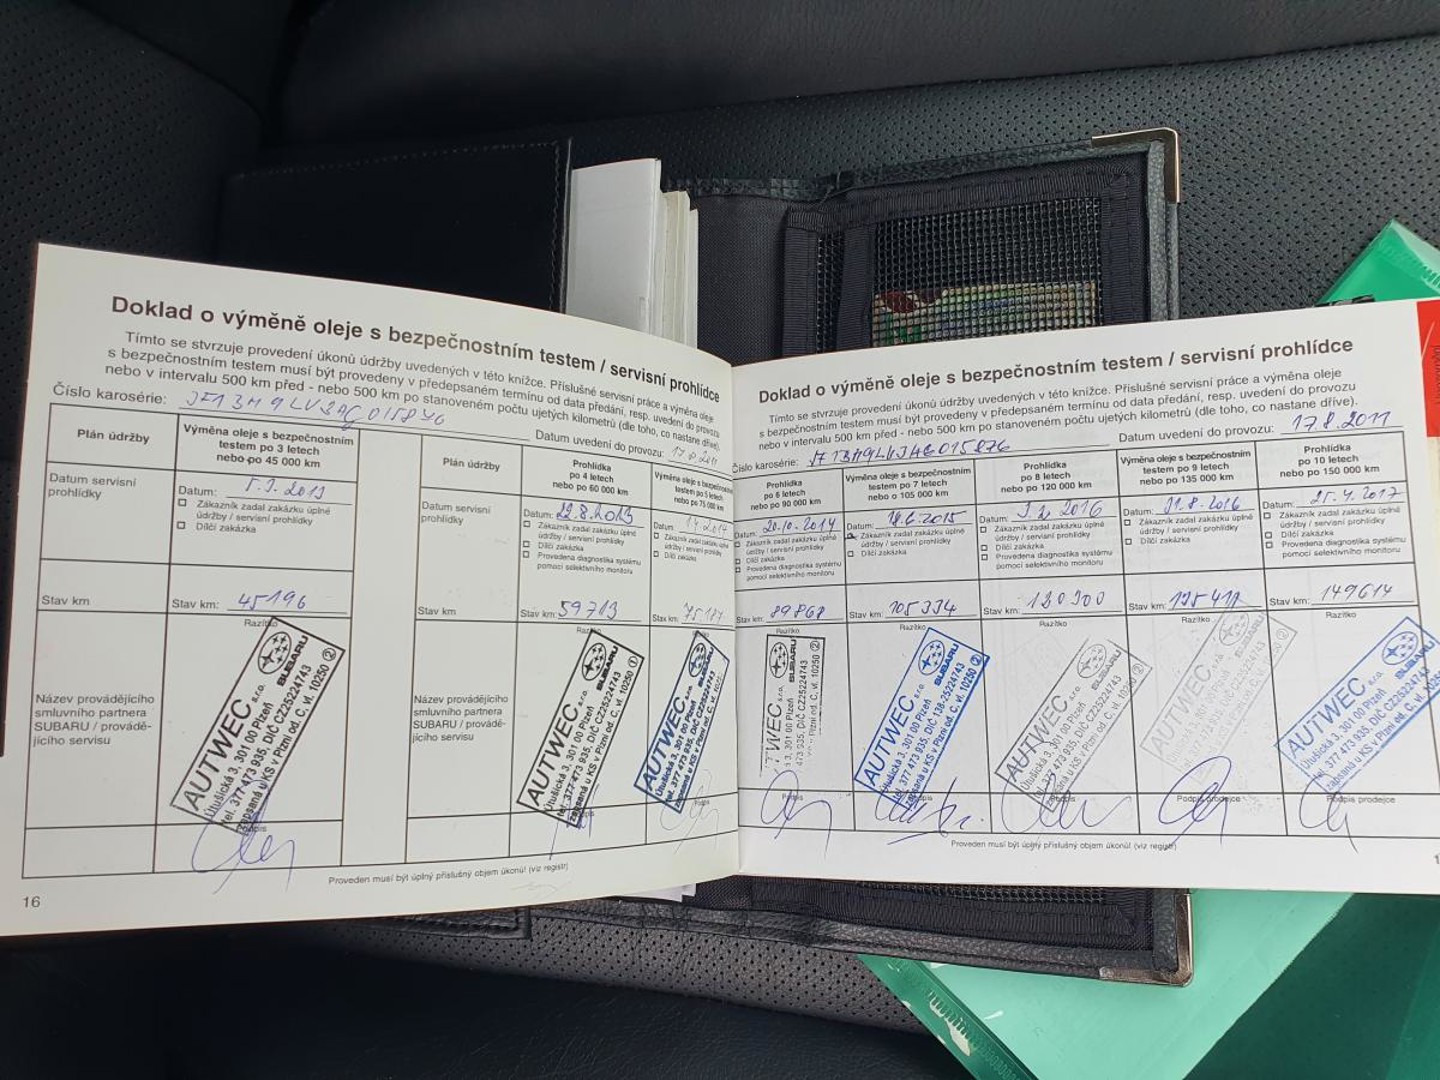 Doklad o výměně oleje s bezpečnostním testem / servisní prohlídce
Tímto se stvrzuje provedení úkonů údržby uvedených v této knížce. Příslušné servisní práce a výměna oleje
s bezpečnostním testem musí být provedeny v předepsaném termínu od data předání, resp. uvedení do provozu
nebo v intervalu 500 km před - nebo 500 km po stanoveném počtu ujetých kilometrů (dle toho, co nastane dříve).
Číslo karosérie:
Datum uvedení do provozu: 17.8.2011
Plán údržby
Výměna oleje s bezpečnostním
testem po 3 letech
nebo po 45 000 km
Datum servisní
prohlídky
Datum: 5.3.2013
Zákazník zadal zakázku úplné
údržby / servisní prohlídky
Dílčí zakázka
Stav km
Stav km: 45196
Název provádějícího
smluvního partnera
SUBARU / provádě-
jícího servisu
Razítko
SUBARU
AUTWEC s.r.o.
Útušická 3, 301 00 Plzeň
tel. 377 473 935, DIČ CZ25224743
zapsaná u KS v Plzni od. C, vl. 10250 ②
Podpis
Plán údržby
Prohlídka
po 4 letech
nebo po 60 000 km
Datum servisní
prohlídky
Datum: 22.8.2013
Zákazník zadal zakázku úplné
údržby / servisní prohlídky
Dílčí zakázka
Provedena diagnostika systému
pomocí selektivního monitoru
Stav km
Stav km: 59713
Název provádějícího
smluvního partnera
SUBARU / provádě-
jícího servisu
Razítko
SUBARU
AUTWEC s.r.o.
Útušická 3, 301 00 Plzeň
tel. 377 473 935, DIČ CZ25224743
zapsaná u KS v Plzni od. C, vl. 10250 ①
Podpis
Výměna oleje s bezpečnostním
testem po 5 letech
nebo po 75 000 km
Datum:
Zákazník zadal zakázku úplné
údržby / servisní prohlídky
Dílčí zakázka
Stav km:
Razítko
SUBARU
AUTWEC s.r.o.
Útušická 3, 301 00 Plzeň
tel. 377 473 935, DIČ CZ25224743
zapsaná u KS v Plzni od. C, vl. 10250 ②
Podpis
Proveden musí být úplný příslušný objem úkonů! (viz registr)
16
Doklad o výměně oleje s bezpečnostním testem / servisní prohlídce
Tímto se stvrzuje provedení úkonů údržby uvedených v této knížce. Příslušné servisní práce a výměna oleje
s bezpečnostním testem musí být provedeny v předepsaném termínu od data předání, resp. uvedení do provozu
nebo v intervalu 500 km před - nebo 500 km po stanoveném počtu ujetých kilometrů (dle toho, co nastane dříve).
Číslo karosérie:
Datum uvedení do provozu: 17.8.2011
Prohlídka
po 6 letech
nebo po 90 000 km
Datum: 20.10.2014
Zákazník zadal zakázku úplné
údržby / servisní prohlídky
Dílčí zakázka
Provedena diagnostika systému
pomocí selektivního monitoru
Stav km: 89868
Razítko
SUBARU
Podpis
Výměna oleje s bezpečnostním
testem po 7 letech
nebo o 105 000 km
Datum: 18.6.2015
Zákazník zadal zakázku úplné
údržby / servisní prohlídky
Dílčí zakázka
Stav km: 105334
Razítko
SUBARU
AUTWEC s.r.o.
Útušická 3, 301 00 Plzeň
tel. 377 473 935, DIČ 138-25224743
zapsaná u KS v Plzni od. C, vl. 10250 ②
Podpis
Prohlídka
po 8 letech
nebo po 120 000 km
Datum: 2016
Zákazník zadal zakázku úplné
údržby / servisní prohlídky
Dílčí zakázka
Provedena diagnostika systému
pomocí selektivního monitoru
Stav km:
Razítko
SUBARU
AUTWEC s.r.o.
Útušická 3, 301 00 Plzeň
tel. 377 473 935, DIČ CZ25224743
zapsaná u KS v Plzni od. C, vl. 10250 ②
Podpis
Výměna oleje s bezpečnostním
testem po 9 letech
nebo po 135 000 km
Datum: 31.8.2016
Zákazník zadal zakázku úplné
údržby / servisní prohlídky
Dílčí zakázka
Stav km:
Razítko
Podpis prodejce
Prohlídka
po 10 letech
nebo po 150 000 km
Datum: 25.4.2017
Zákazník zadal zakázku úplné
údržby / servisní prohlídky
Dílčí zakázka
Provedena diagnostika systému
pomocí selektivního monitoru
Stav km: 149614
Razítko
SUBARU
AUTWEC s.r.o.
Útušická 3, 301 00 Plzeň
tel. 377 473 935, DIČ CZ25224743
zapsaná u KS v Plzni od. C, vl. 10250
Podpis prodejce
Proveden musí být úplný příslušný objem úkonů! (viz registr)